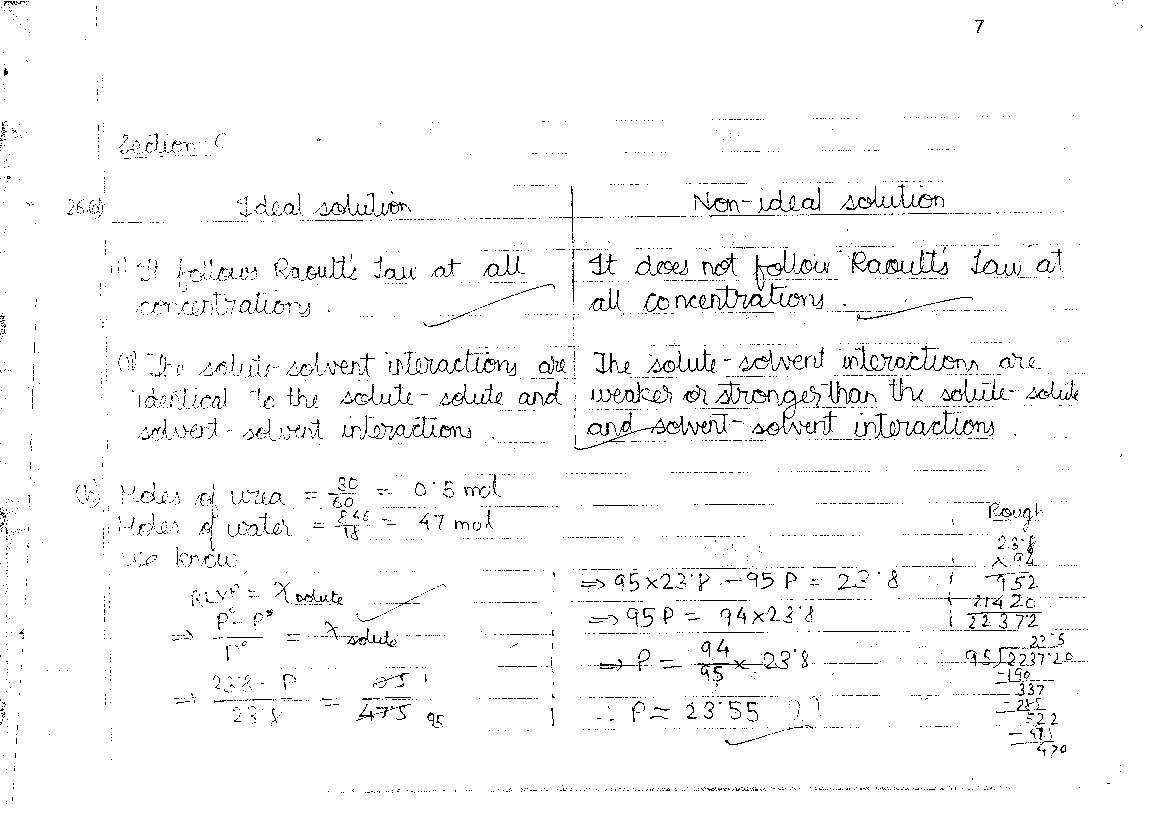 7
Section-C
26.(a) Ideal solution Non-ideal solution
(i) It follows Raoult's Law at all
concentrations.
It does not follow Raoult's Law at
all concentrations.
(ii) The solute-solvent interactions are
identical to the solute-solute and
solvent-solvent interactions.
The solute-solvent interactions are
weaker or stronger than the solute-solute
and solvent-solvent interactions.
(b) Moles of urea = 30/60 = 0.5 mol
Moles of water = 846/18 = 47 mol
We know,
RLVP = χ solute
⇒ (P° - P*)/P° = χ solute
⇒ (23.8 - P)/23.8 = 1/95
⇒ 95×23.8 - 95P = 23.8
⇒ 95P = 94×23.8
⇒ P = 94/95 × 23.8
∴ P = 23.55
Rough
23.8
×94
952
21420
22372
22.5
95)2237.20
-190
337
-285
522
470